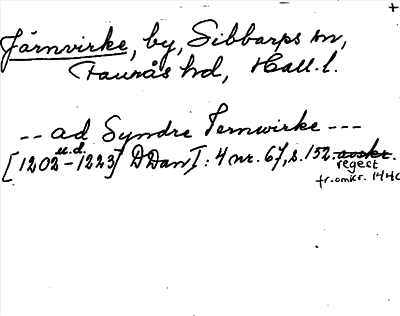 +
Järnvirke, by, Sibbarps sn,
Faurås hd, Hall. l.
-- ad Syndre Iernwirke ---
u.d.
[1202 - 1223] DDan I: 4 nr. 67, s. 152. avskr.
regest
fr. omkr. 1440